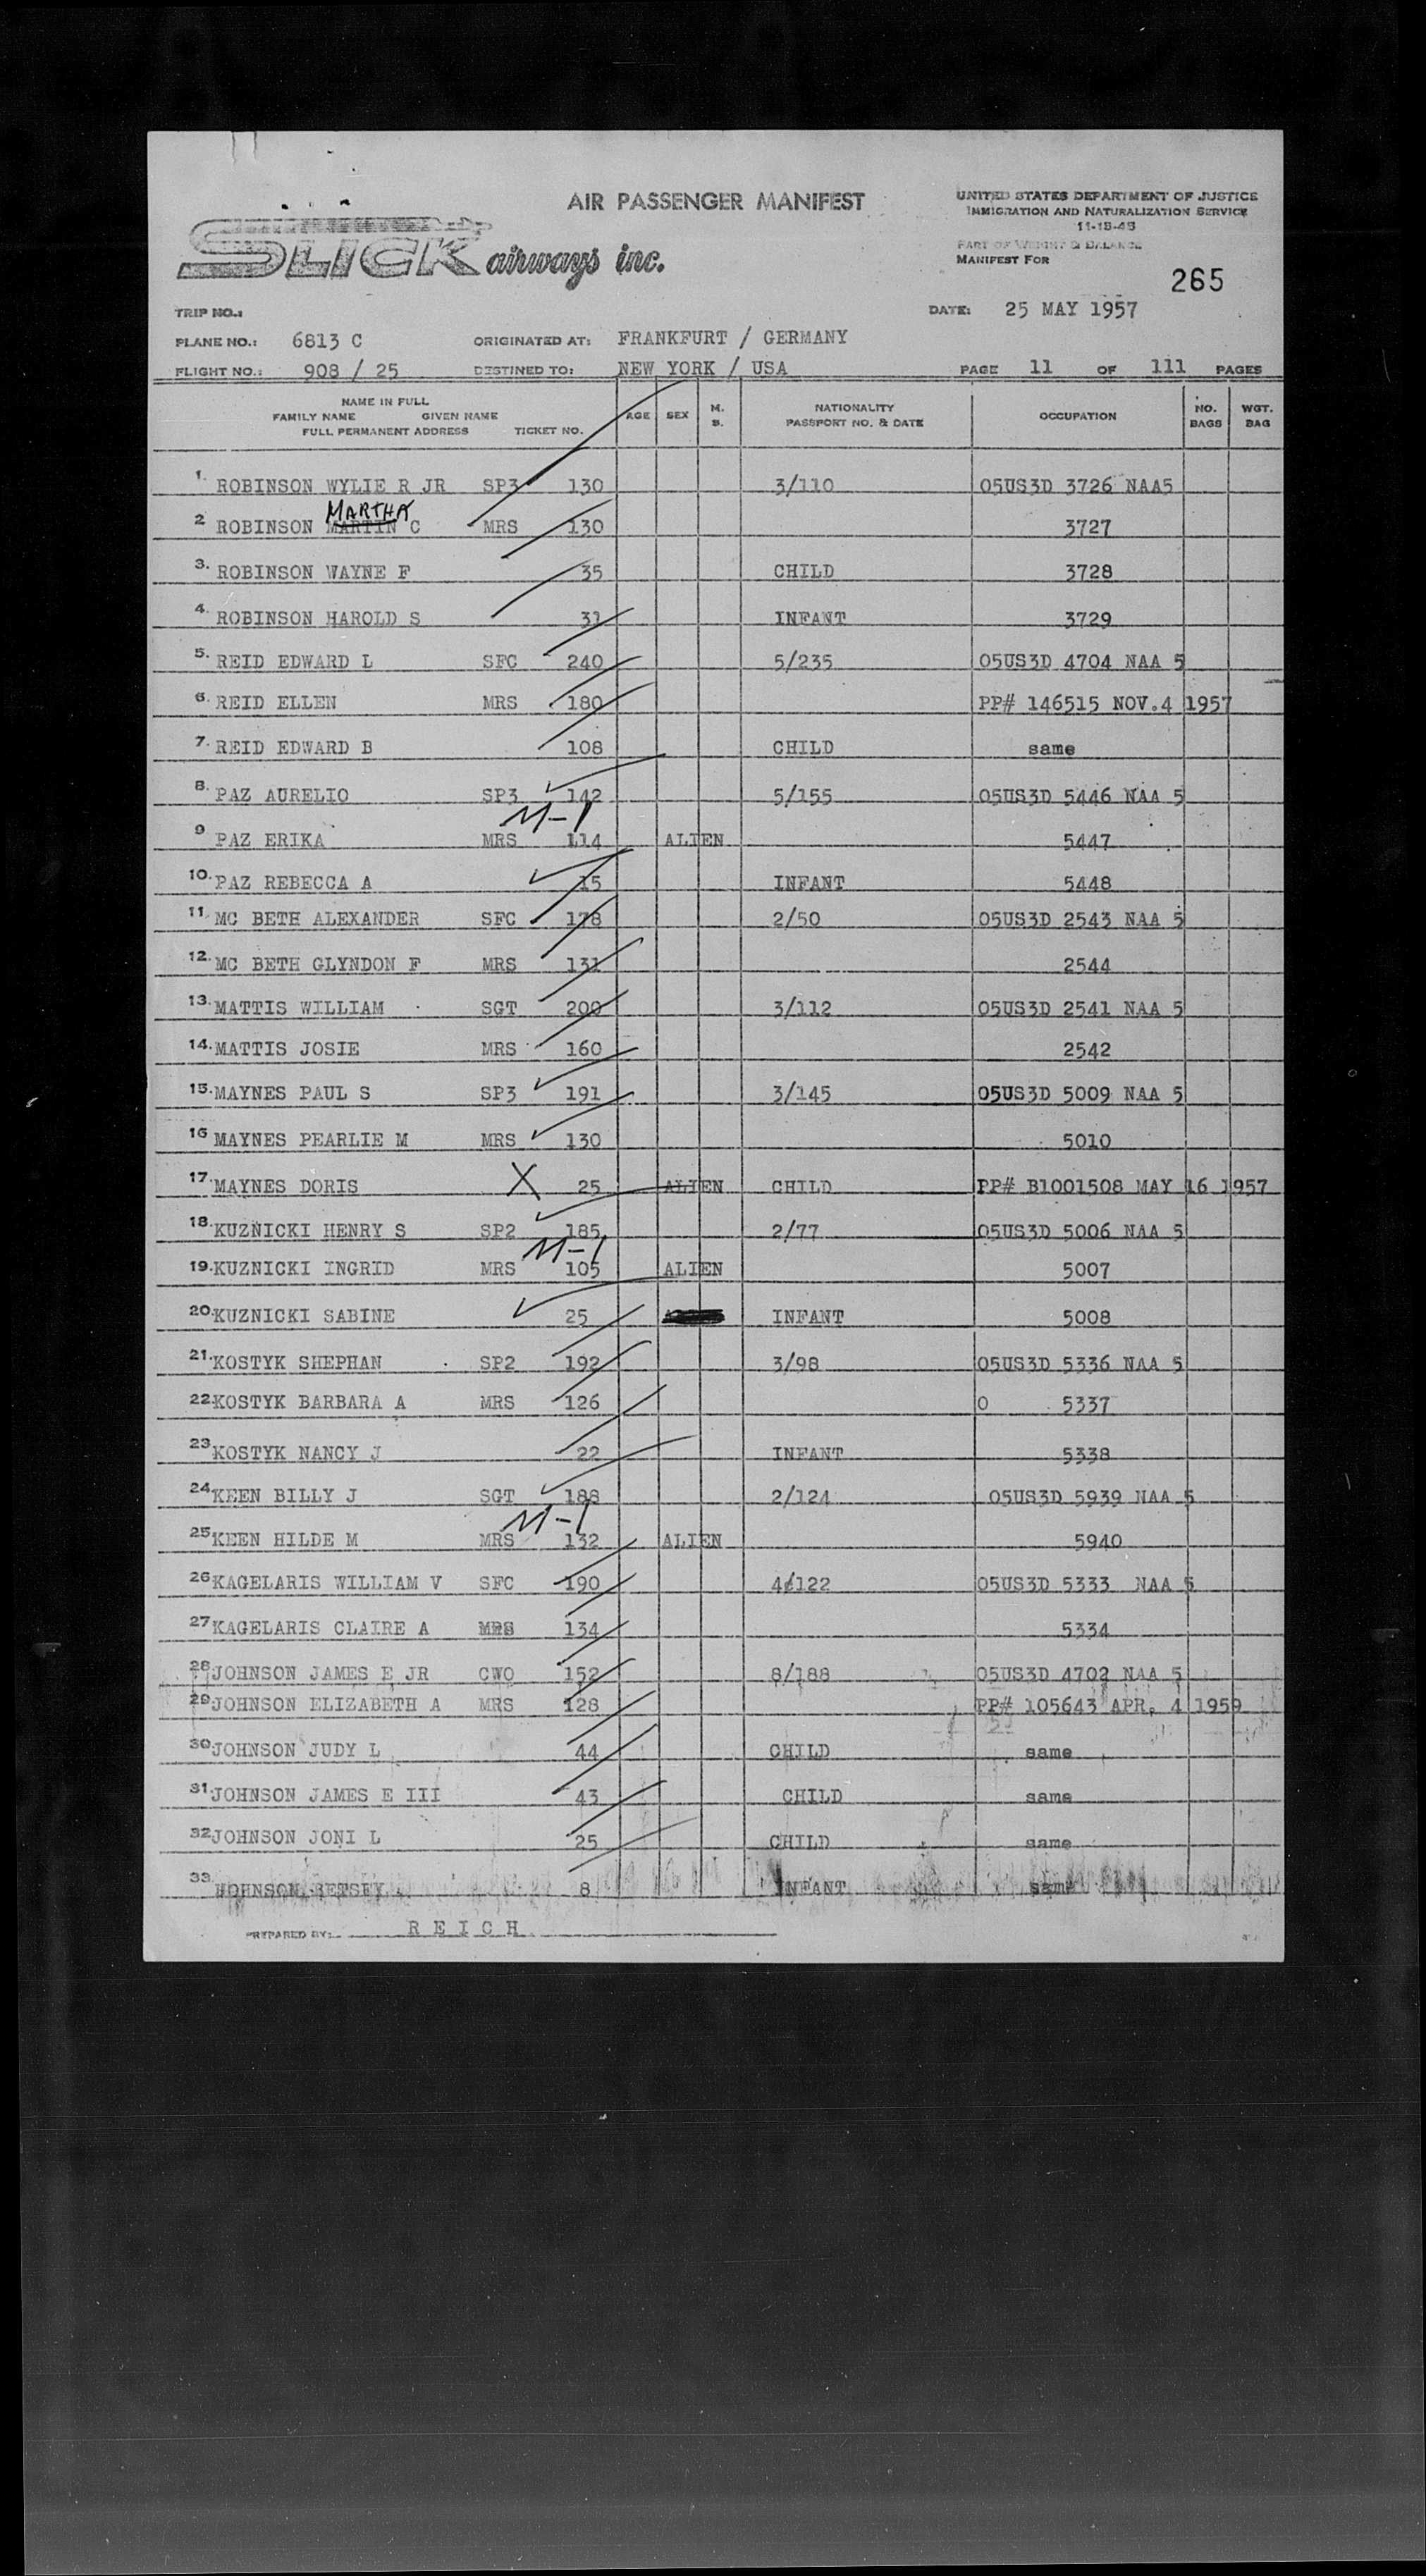 AIR PASSENGER MANIFEST
UNITED STATES DEPARTMENT OF JUSTICE
IMMIGRATION AND NATURALIZATION SERVICE
11-18-45
PART OF WEIGHT & BALANCE
MANIFEST FOR
SLICK airways inc.
265
TRIP NO.:
DATE: 25 MAY 1957
PLANE NO.: 6813 C ORIGINATED AT: FRANKFURT / GERMANY
FLIGHT NO.: 908 / 25 DESTINED TO: NEW YORK / USA PAGE 11 OF 111 PAGES
NAME IN FULL
FAMILY NAME GIVEN NAME
FULL PERMANENT ADDRESS TICKET NO. AGE SEX M. S. NATIONALITY PASSPORT NO. & DATE OCCUPATION NO. BAGS WGT. BAG
1. ROBINSON WYLIE R JR SP3 130 3/110 05US3D 3726 NAA5
MARTHA
2 ROBINSON MARTIN C MRS 130 3727
3. ROBINSON WAYNE F 35 CHILD 3728
4. ROBINSON HAROLD S 31 INFANT 3729
5. REID EDWARD L SFC 240 5/235 05US3D 4704 NAA 5
6. REID ELLEN MRS 180 PP# 146515 NOV.4 1957
7. REID EDWARD B 108 CHILD same
8. PAZ AURELIO SP3 142 5/155 05US3D 5446 NAA 5
M-1
9 PAZ ERIKA MRS 114 ALIEN 5447
10. PAZ REBECCA A 15 INFANT 5448
11. MC BETH ALEXANDER SFC 178 2/50 05US3D 2543 NAA 5
12. MC BETH GLYNDON F MRS 131 2544
13. MATTIS WILLIAM SGT 200 3/112 05US3D 2541 NAA 5
14. MATTIS JOSIE MRS 160 2542
15. MAYNES PAUL S SP3 191 3/145 05US3D 5009 NAA 5
16 MAYNES PEARLIE M MRS 130 5010
17. MAYNES DORIS X 25 ALIEN CHILD PP# B1001508 MAY 16 1957
18. KUZNICKI HENRY S SP2 185 2/77 05US3D 5006 NAA 5
M-1
19. KUZNICKI INGRID MRS 105 ALIEN 5007
20. KUZNICKI SABINE 25 INFANT 5008
21. KOSTYK SHEPHAN SP2 192 3/98 05US3D 5336 NAA 5
22. KOSTYK BARBARA A MRS 126 O 5337
23 KOSTYK NANCY J 22 INFANT 5338
24 KEEN BILLY J SGT 188 2/124 05US3D 5939 NAA 5
M-1
25 KEEN HILDE M MRS 132 ALIEN 5940
26 KAGELARIS WILLIAM V SFC 190 4/122 05US3D 5333 NAA 5
27 KAGELARIS CLAIRE A MRS 134 5334
28 JOHNSON JAMES E JR CWO 152 8/188 05US3D 4702 NAA 5
29 JOHNSON ELIZABETH A MRS 128 PP# 105643 APR. 4 1959
30 JOHNSON JUDY L 44 CHILD same
31. JOHNSON JAMES E III 43 CHILD same
32 JOHNSON JONI L 25 CHILD same
33 JOHNSON BETSEY 8 INFANT same
PREPARED BY: REICH